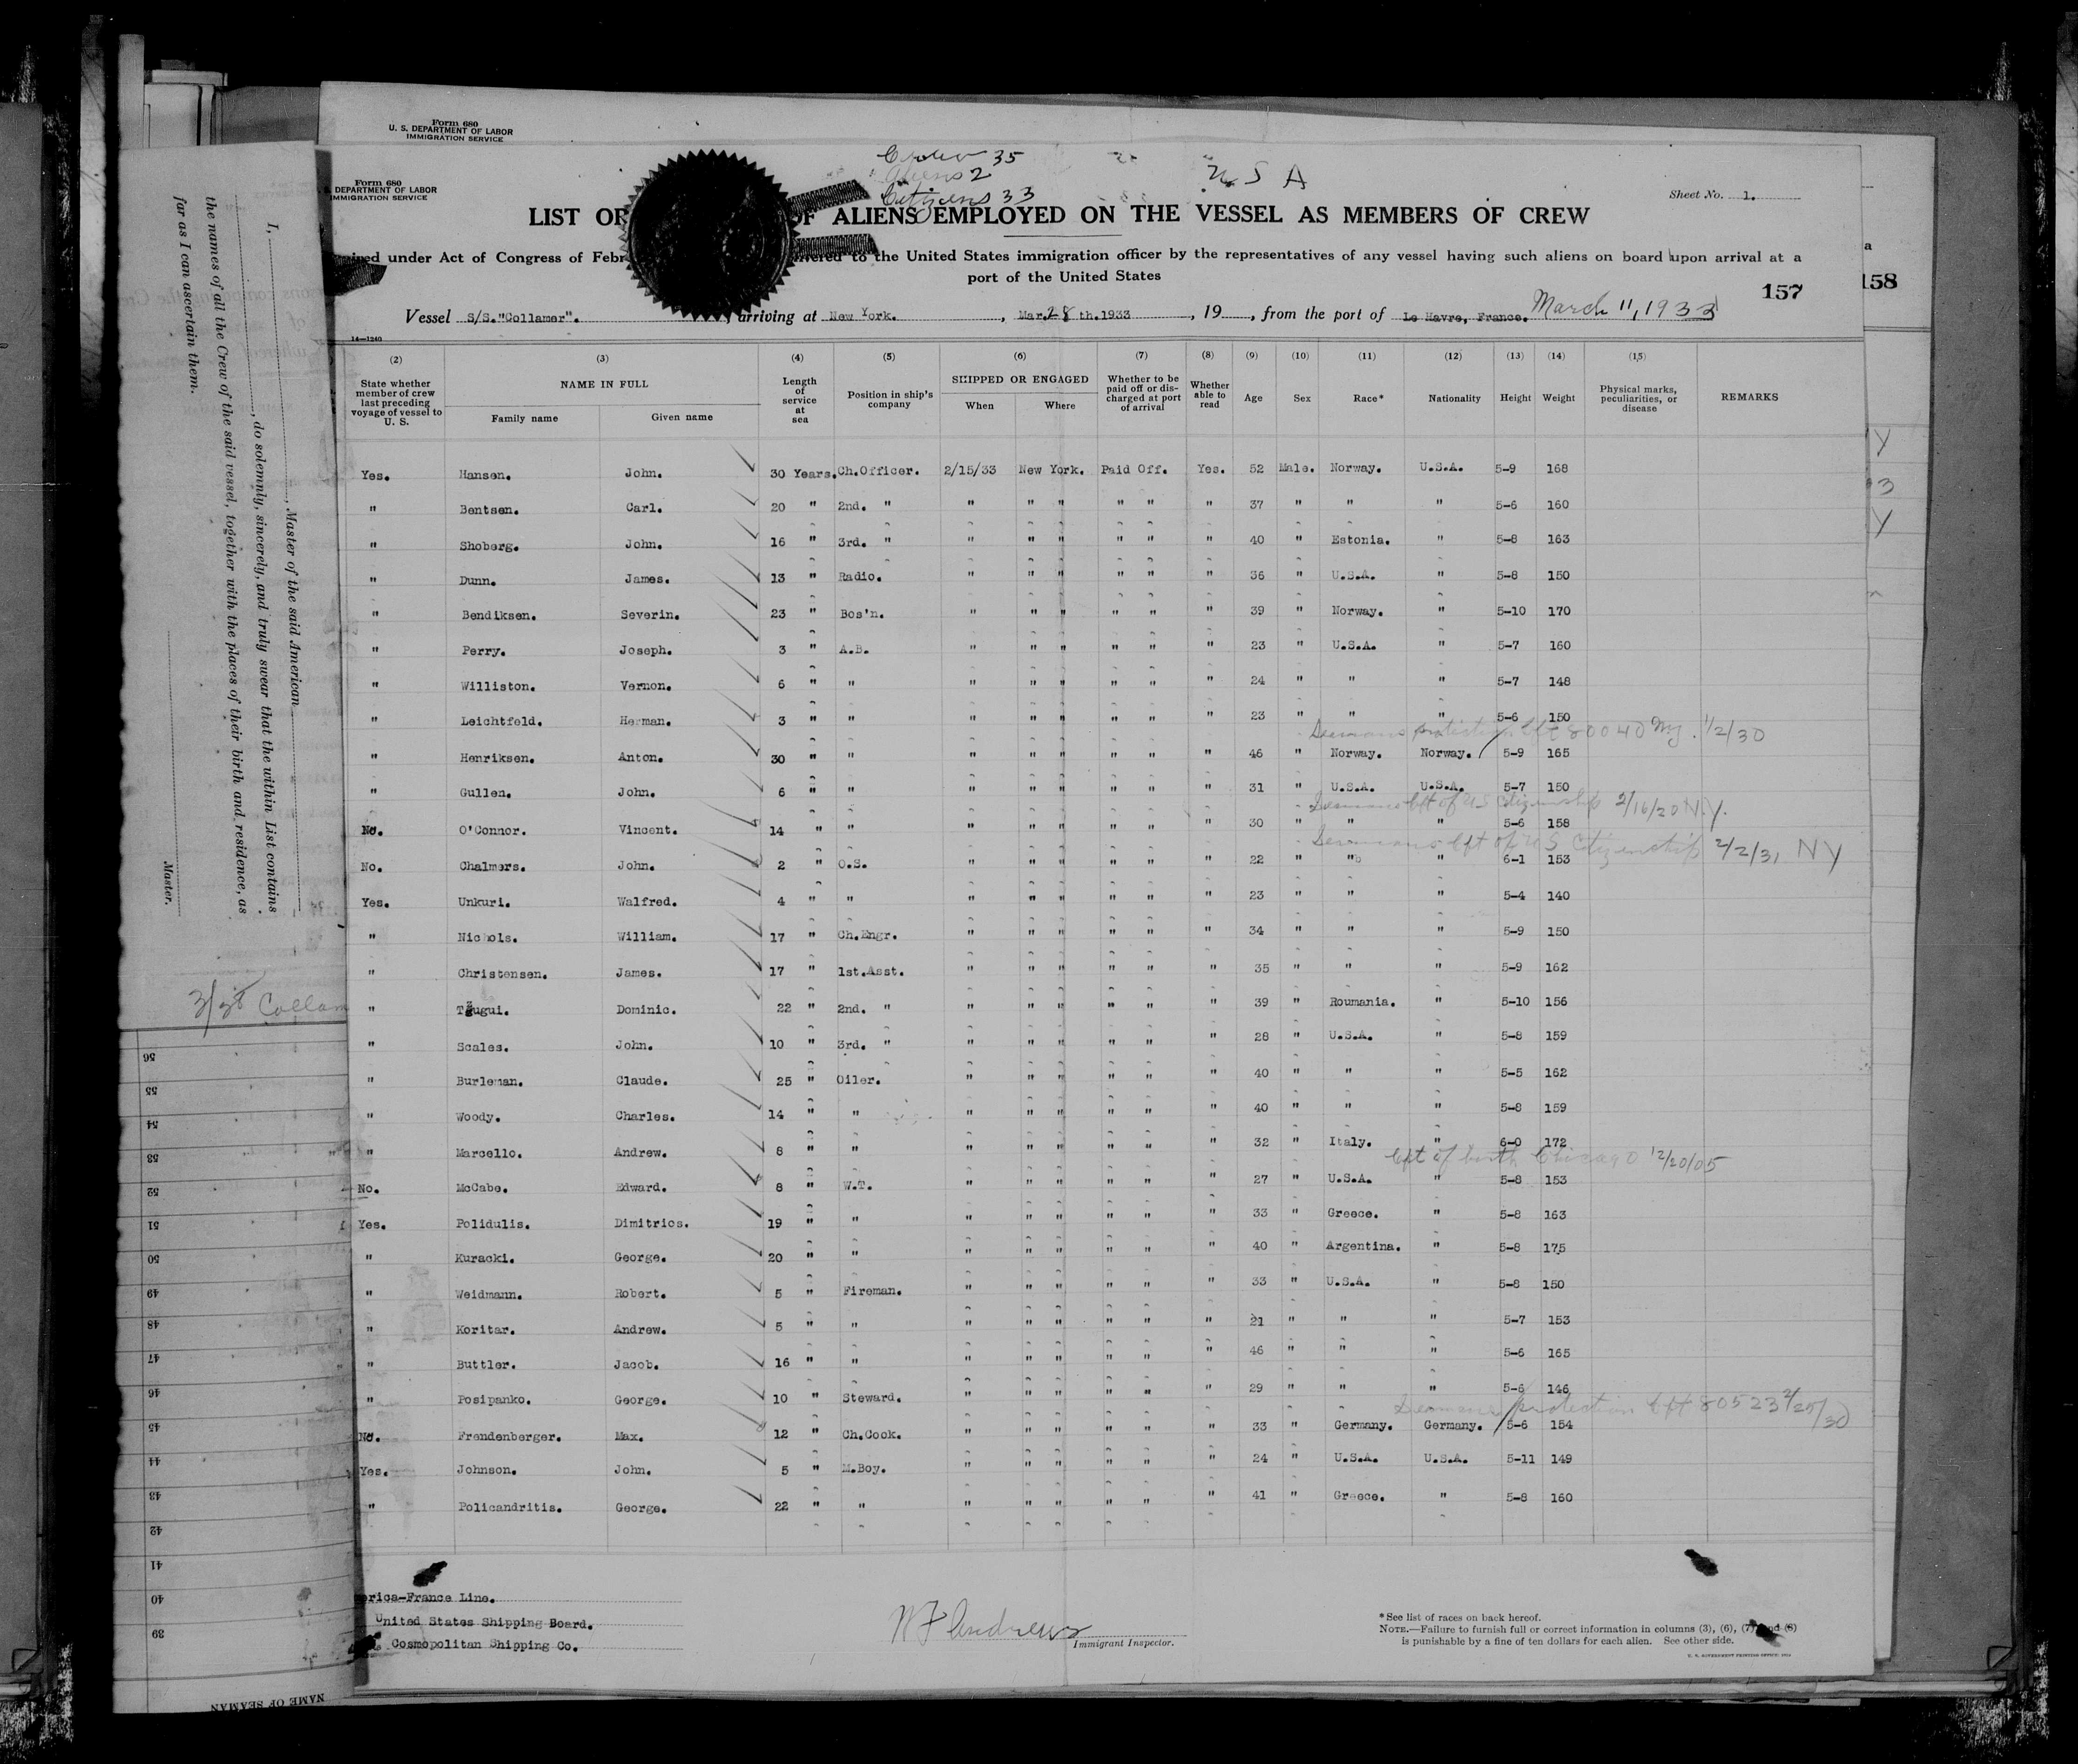 Form 680
U. S. DEPARTMENT OF LABOR
IMMIGRATION SERVICE
Form 680
DEPARTMENT OF LABOR
IMMIGRATION SERVICE
35
Aliens 2
Citizens 33
U S A
Sheet No. 1.
LIST OR OF ALIENS EMPLOYED ON THE VESSEL AS MEMBERS OF CREW
under Act of Congress of Febr to the United States immigration officer by the representatives of any vessel having such aliens on board upon arrival at a
port of the United States
157
158
Vessel S/S."Collamer". arriving at New York. , Mar. 28 th.1933 , 19 , from the port of Le Havre, France. March 11, 1933
14—1240
(2) (3) (4) (5) (6) (7) (8) (9) (10) (11) (12) (13) (14) (15)
State whether member of crew last preceding voyage of vessel to U. S. NAME IN FULL Family name Given name Length of service at sea Position in ship's company SHIPPED OR ENGAGED When Where Whether to be paid off or discharged at port of arrival Whether able to read Age Sex Race* Nationality Height Weight Physical marks, peculiarities, or disease REMARKS
Yes. Hansen. John. 30 Years. Ch.Officer. 2/15/33 New York. Paid Off. Yes. 52 Male. Norway. U.S.A. 5-9 168
" Bentsen. Carl. 20 " 2nd. " " " " " " " 37 " " " 5-6 160
" Shoberg. John. 16 " 3rd. " " " " " " " 40 " Estonia. " 5-8 163
" Dunn. James. 13 " Radio. " " " " " " 36 " U.S.A. " 5-8 150
" Bendiksen. Severin. 23 " Bos'n. " " " " " " 39 " Norway. " 5-10 170
" Perry. Joseph. 3 " A.B. " " " " " " 23 " U.S.A. " 5-7 160
" Williston. Vernon. 6 " " " " " " " " 24 " " " 5-7 148
" Leichtfeld. Herman. 3 " " " " " " " " 23 " " " 5-6 150
Seamans protection Cft 80040 NY. 1/2/30
" Henriksen. Anton. 30 " " " " " " " " 46 " Norway. Norway. 5-9 165
" Gullen. John. 6 " " " " " " " " 31 " U.S.A. U.S.A. 5-7 150
Seamans Cft of US Citizenship 2/16/20 N.Y.
No. O'Connor. Vincent. 14 " " " " " " " " 30 " " " 5-6 158
Seamans Cft of US Citizenship 2/2/31 NY
No. Chalmers. John. 2 " O.S. " " " " " " 22 " " " 6-1 153
Yes. Unkuri. Walfred. 4 " " " " " " " " 23 " " " 5-4 140
" Nichols. William. 17 " Ch.Engr. " " " " " " 34 " " " 5-9 150
" Christensen. James. 17 " 1st.Asst. " " " " " " 35 " " " 5-9 162
" Dominic. 22 " 2nd. " " " " " " " 39 " Roumania. " 5-10 156
" Scales. John. 10 " 3rd. " " " " " " " 28 " U.S.A. " 5-8 159
" Burleman. Claude. 25 " Oiler. " " " " " " 40 " " " 5-5 162
" Woody. Charles. 14 " " " " " " " " 40 " " " 5-8 159
" Marcello. Andrew. 8 " " " " " " " " 32 " Italy. " 6-0 172
Cft of birth Chicago 12/20/05
No. McCabe. Edward. 8 " W.T. " " " " " " 27 " U.S.A. " 5-8 153
Yes. Polidulis. Dimitrios. 19 " " " " " " " " 33 " Greece. " 5-8 163
" Kuracki. George. 20 " " " " " " " " 40 " Argentina. " 5-8 175
" Weidmann. Robert. 5 " Fireman. " " " " " " 33 " U.S.A. " 5-8 150
" Koritar. Andrew. 5 " " " " " " " " 21 " " " 5-7 153
" Buttler. Jacob. 16 " " " " " " " " 46 " " " 5-6 165
" Posipanko. George. 10 " Steward. " " " " " " 29 " " " 5-6 146
Seamans protection Cft 80523 2/25/30
No. Frendenberger. Max. 12 " Ch.Cook. " " " " " " 33 " Germany. Germany. 5-6 154
Yes. Johnson. John. 5 " M.Boy. " " " " " " 24 " U.S.A. U.S.A. 5-11 149
" Policandritis. George. 22 " " " " " " " " 41 " Greece. " 5-8 160
erica-France Line.
United States Shipping Board.
Cosmopolitan Shipping Co.
W F Andrews
Immigrant Inspector.
*See list of races on back hereof.
NOTE.—Failure to furnish full or correct information in columns (3), (6), (7) and (8)
is punishable by a fine of ten dollars for each alien. See other side.
U. S. GOVERNMENT PRINTING OFFICE
I, , Master of the said American
, do solemnly, sincerely, and truly swear that the within List contains
the names of all the Crew of the said vessel, together with the places of their birth and residence, as
far as I can ascertain them.
Master.
3/28 Collam
56
55
54
53
52
51
50
49
48
47
46
45
44
43
42
41
40
39
NAME OF SEAMAN